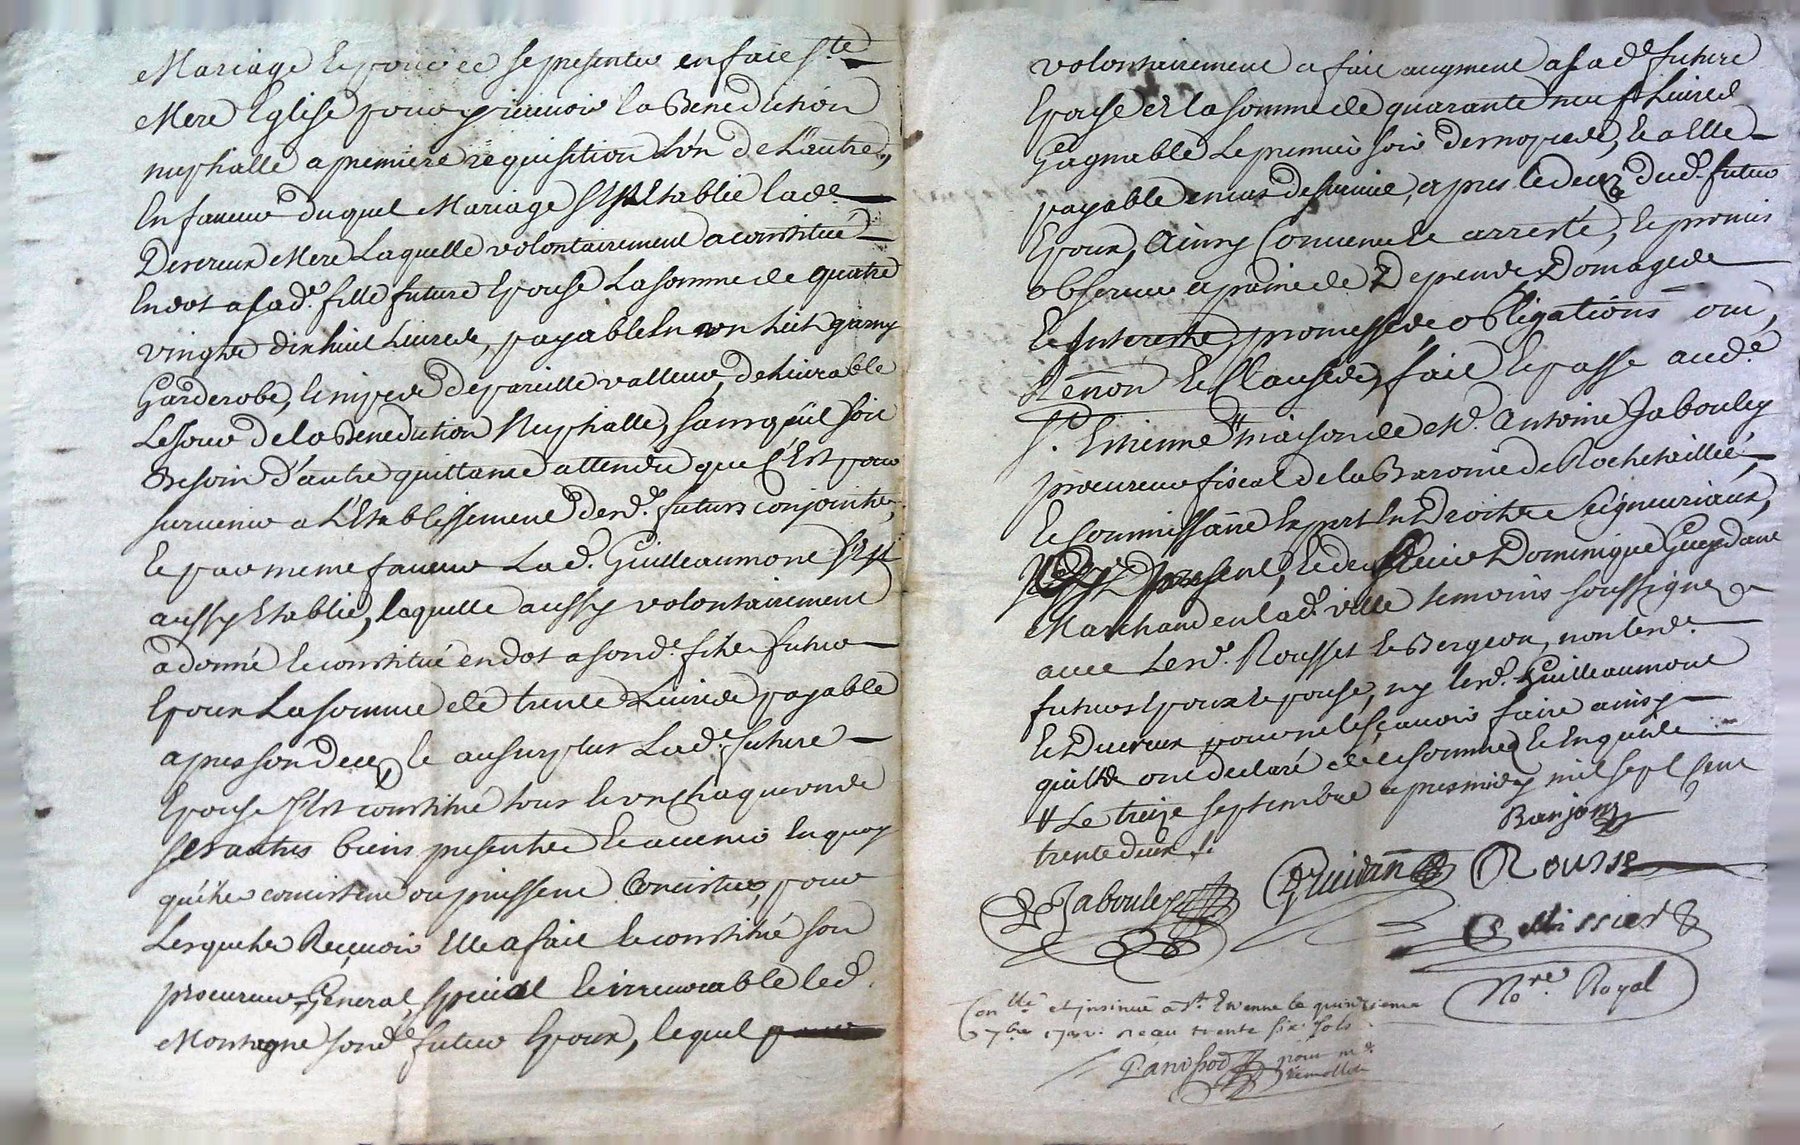 Mariage Epousé ce se presenter en face Ste
Mere Eglise pour y recevoir la Benediction
nuptialle a premiere requisition L'vn de L'autre,
En faveur duquel Mariage s'est Etablie lade.
Devereux Mere Laquelle volontairement a constitué
En dot a sa de. fille future Epouse La somme de quatre
vingts dix huit Livres, payable En un huit garny
Garderobe, Linges de pareille valleur, delivrable
Le jour de la Benediction Nuptialle, sans qu'il soit
Besoin d'autre quittance attendu que C'Est pour
survenir a L'Etablissement desd. futurs conjoints,
Et par meme faveur Lad. Guilleaumone s'est
aussy Etablie, laquelle aussy volontairement
a donné Et constitué en dot a sond. fils futur
Epoux La somme de trente Livres payable
apres son deces, Et au surplus Lade. future
Epouse s'Est constitué tous Et vn chaquun de
ses autres biens presents Et avenir En quoy
qu'ils consistent ou puissent Consister, pour
Lesquels Reçevoir Elle a fait Et constitué son
procureur General, special Et irrevocable led.
Montagne sond. futur Epoux, lequel
volontairement a fait augment a sa de. future
Epouse de la somme de quarante neuf Livres
Gagnable Le premier soir des nopces, Et a Elle
payable en cas de survie, apres le deces dud. futur
Epoux, Ainsy Convenu Et arresté, Et promis
observer a peine de Depens Domages
Et Interests, promesses obligations
Renon Et Clauses, fait Et passé aud.
St. Etienne maison de Me. Antoine Jabouley
procureur fiscal de la Baronie de Rochetaillée,
Et Commissaire Expert En Droits Seigneuriaux,
present, Et de sieur Dominique Gueydane
Marchand en lad. ville temoins soussignes
avec Lesd. Rousset Et Bergeon, non lesd.
futurs Epoux Et Epouse, ny lesd. Guilleaumone
Et Devreux pour ne le sçavoir faire ainsy
qu'ils ont declaré de ce sommes Et Enquis
Le treize septembre apres midy mil sept cent
trente deux.
Banjon
Jabouley Rousse
Tissier
Nore. Royal
Conllé et insinué a St. Etienne le quinzieme
7bre 1732. reçu trente six sols
pour mr.